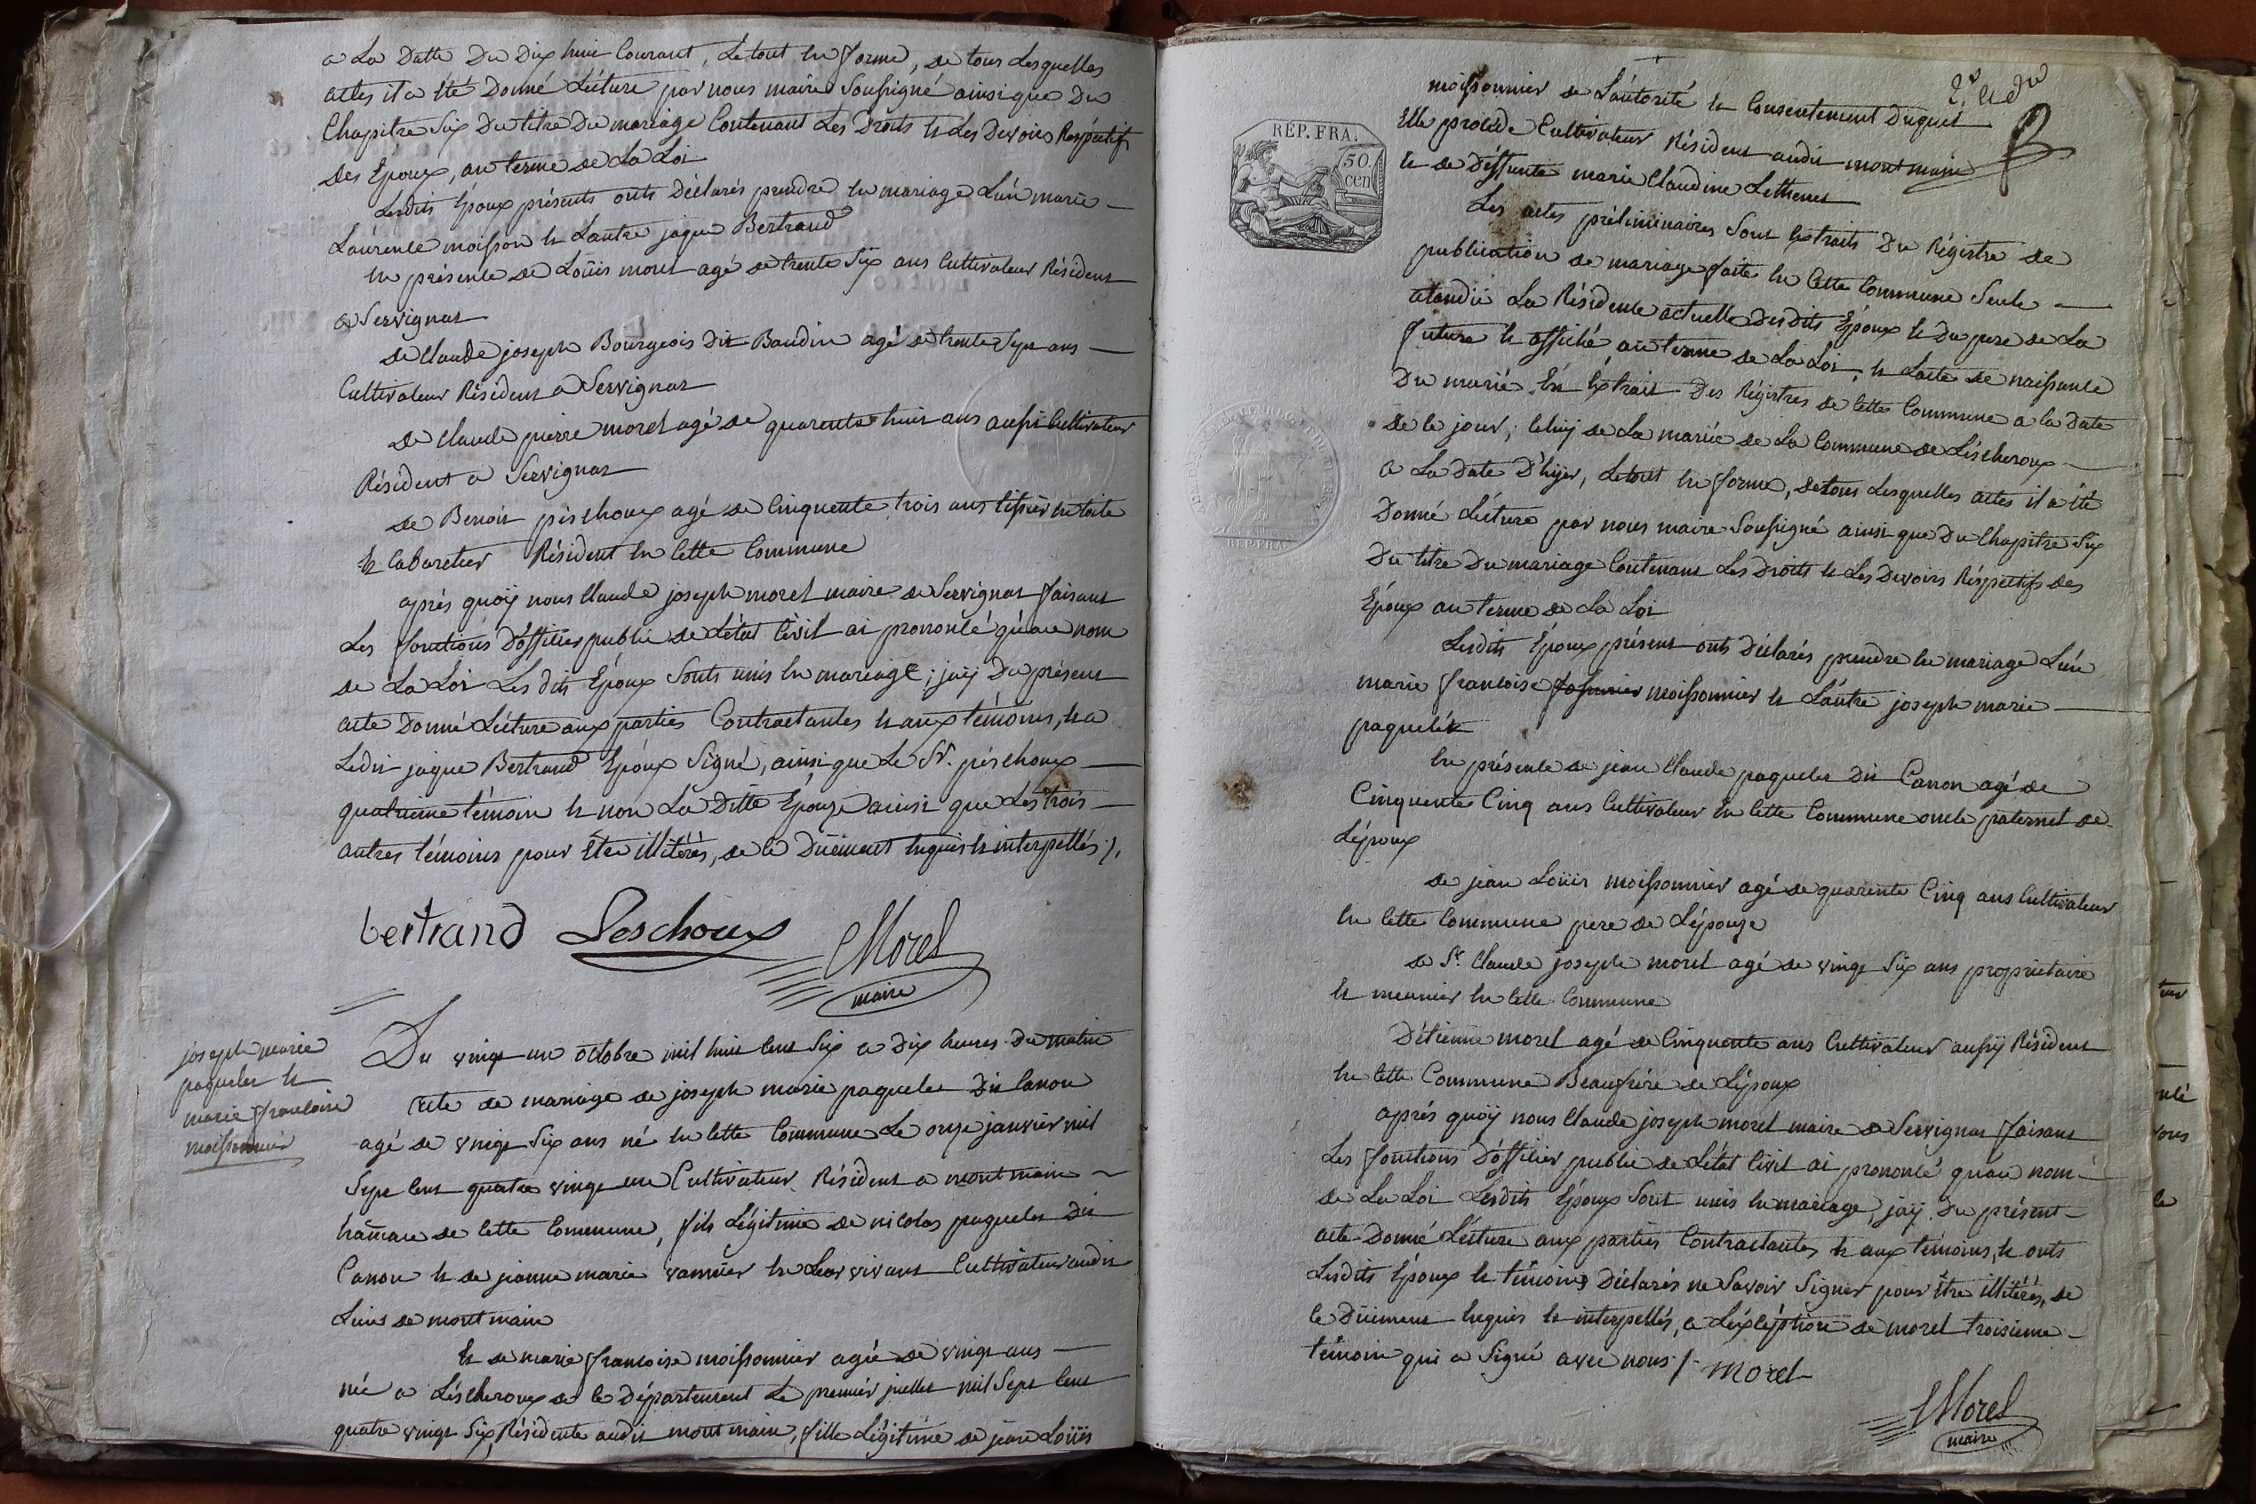 a La Datte Du Dix huit Courant, Le tout en forme, de tous Lesquelles
actes il a été Donné Lécture par nous maire Soussigné ainsi que Du
Chapitre Six Du titre Du mariage Contenant Les Droits et Les Devoirs Respéctifs
des Epoux, au terme de La Loi
Lesdits Epoux présents onts Déclarés prendre en mariage L'uñ marie
Laurence moisson et L'autre jaque Bertrand
En présence de Loüis moret agé de trente Six ans Cultivateur Résident
a Servignat
de Claude joseph Bourgeois dit Baudin agé de trente Sept ans
Cultivateur Résident a Servignat
de Claude pierre morel agé de quarente huit ans aussi Cultivateur
Résident a Servignat
de Benoit péschoux agé de Cinquente trois ans tissier en toile
et Cabaretier Résident en Cette Commune
aprés quoÿ nous Claude joseph morel maire de Servignat faisant
Les fonctions D'officier public de L'état Civil ai prononcé qu'au nom
de La Loi Les dits Epoux Sonts unis en mariage; j'aÿ Du présent
acte Donné Lécture aux parties Contractantes et aux témoins, et a
Ledit jaque Bertrand Epoux Signé, ainsi que Le Sr. péschoux
quatrieme témoin et non La Ditte Epouze ainsi que Les trois
autres témoins pour Etre illitérés, de ce Düement enquis et interpellés ./.
bertrand Peschoux Morel
maire
joseph marie
paquelet et
marie francoise
moissonnier
Du vingt un octobre mil huit Cent Six a Dix heures Du matin
acte de mariage de joseph marie paquelet Dit Canon
agé de vingt Six ans né en Cette Commune Le onze janvier mil
Sept Cent quatre vingt un Cultivateur Résident a montmain
hameau de Cette Commune, fils Légitime de nicolas paquelet Dit
Canon et de jeanne marie vannier en Leur vivant Cultivateur audit
Lieux de montmain
Et de marie francoise moissonnier agée de vingt ans
née a Léscheroux de ce Département Le premiér juillet mil Sept Cent
quatre vingt Six, Résidente audit montmain, fille Légitime de jean Loüis
moissonnier de L'autorité et Consentement Duquel
Elle procede Cultivateur Résident audit montmain
et de Déffunte marie Claudine Lethenet
REP. FRA.
50.
cen
Les actes préliminaires Sont Extraits Du Régistre de
publication de mariage faite en Cette Commune Seule
atandü La Résidence actuelle Desdits Epoux et Du pere de La
future et affiché au terme de La Loi, et L'acte de naissance
Du marié Én Extrait Des Régistres de Cette Commune a la Date
de Ce jour; Celuÿ de La mariée de La Commune de Léscheroux
a La Date D'hÿer, Le tout en forme, de tous Lesquelles actes il a été
Donné Lécture par nous maire Soussigné ainsi que Du Chapitre Six
Du titre Du mariage Contenant Les Droits et Les Devoirs Réspectifs des
Epoux au terme de La Loi
REP. FRA
Lesdits Epoux présent onts Déclarés prendre en mariage L'uñe
marie francoise moissonnier et L'autre joseph marie
paquelet
En présence de jean Claude paquelet Dit Canon agé de
Cinquente Cinq ans Cultivateur En Cette Commune oncle paternel de
L'époux
de jean Loüis moissonnier agé de quarente Cinq ans Cultivateur
en Cette Commune pere de L'épouze
de Sr. Claude joseph morel agé de vingt Six ans proprietaire
et meunier en Cette Commune
D'étienne morel agé de Cinquente ans Cultivateur aussÿ Résident
en Cette Commune Beaufrére de L'époux
aprés quoÿ nous Claude joseph morel maire de Servignat faisant
Les fonctions D'officier public de L'état Civil ai prononcé qu'au nom
de La Loi Lesdits Epoux Sont unis en mariage, j'aÿ Du présent
acte Donné Lécture aux parties Contractantes et aux témoins, et onts
Lesdits Epoux et témoins Déclarés ne Savoir Signer pour être illitérés, de
Ce Düement Enquis et interpellés, a L'éxcéption de morel troisieme
témoin qui a Signé avec nous ./. morel
Morel
maire